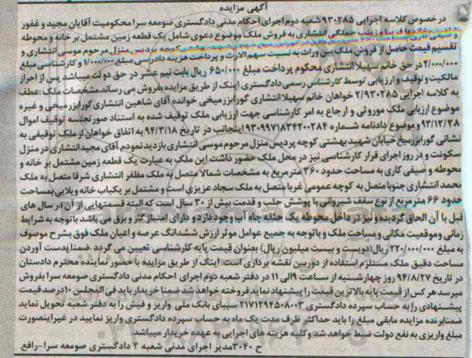 آگهی مزایده
در خصوص کلاسه اجرایی ۹۳۰۲۸۵شعبه دوم اجرای احکام مدنی دادگستری صومعه سرا محکومیت آقایان مجید و غفور
انتشاری به فروش ملک موضوع دعوی شامل یک قطعه زمین مشتمل بر خانه و محوطه
تقسیم قیمت حاصل از فروش ملک بین وراث به نسبت سهم الارث و پرداخت هزینه دادرسی مبلغ ۱/۰۰۰/۰۰۰ منزل مرحوم موسی انتشاری و
۲/۰۰۰/۰۰۰ در حق خانم سهیلا انتشاری محکوم پرداخت مبلغ ۶۵۰/۰۰۰ ریال بابت نیم عشر در حق دولت میباشد پس از احراز
مالکیت و توقیف و ارزیابی توسط کارشناس رسمی دادگستری اینک از طریق مزایده بفروش می رساند مشخصات ملک:عطف
به کلاسه اجرایی ۲/۹۳۰۲۸۵ خواهان خانم سهیلا انتشاری گورابزرمیخی خوانده آقای شاهین انتشاری گورابزرمیخی و غیره
موضوع ارزیابی ملک موروثی و ارجاع به امر کارشناسی جهت ارزیابی ملک توقیف شده به استناد صورتجلسه توقیف اموال
۹۳/۱۲/۲۸ و موضوع دادنامه شماره ۹۳۰۹۹۷۱۸۳۴۲۰۰۲۸۴ اینجانب در تاریخ ۹۴/۳/۱۸ به اتفاق خواهان از ملک توقیفی به
نشانی گورابزرمیخ خیابان شهید بهشتی کوچه پردیس منزل مرحوم موسی انتشاری بازدید نمودم آقای مجید انتشاری در منزل
سکونت و در روز اجرای قرار کارشناسی نیز در محل ملک حضور داشت این ملک به عبارت یک قطعه زمین مشتمل بر خانه و
محوطه و صیفی کاری به مساحت حدود ۳۶۰ مترمربع به مشخصات شمالا متصل به ملک مظفر انتشاری شرقا متصل به ملک
محمد انتشاری جنوبا متصل به کوچه عمومی غربا متصل به ملک سجاد عزیزی است و مشتمل بر یکباب خانه ویلایی بمساحت
حدود ۶۶ مترمربع از نوع سقف شیروانی با پوشش حلب و قدمت بیش از ۳۰ سال است که البته قسمتهایی از آن در سال های
قبل با آن الحاق گردیده و نیز در داخل محوطه یک حلقه چاه آب وجود دارد و دارای امتیاز گاز و برق می باشد باتوجه به شرایط
وضعیت موقعیت مکانی و مساحت ملک و باتوجه به جمیع عوامل موثر ارزش ششدانگ عرصه و اعیان ملک فوق بشرح موسوف
به مبلغ ۲۲۰/۰۰۰/۰۰۰ ریال (دویست و بیست میلیون ریال) بعنوان قیمت پایه کارشناسی تعیین می گردد ضمنا بدست آوردن
مساحت دقیق ملک مستلزم استفاده از دوربین نقشه برداری است. اینک از طریق مزایده با حضور نماینده محترم دادستان
در تاریخ ۹۴/۸/۲۷ روز چهارشنبه از ساعت ۹ الی ۱۱ در دفتر شعبه دوم اجرای احکام مدنی دادگستری صومعه سرا بفروش
میرسد هر کس از قیمت پایه بالاترین قیمت را پیشنهاد نماید فروخته خواهد شد ضمنا خریدار باید فی المجلس ۱۰ درصد قیمت
پیشنهادی را به حساب سپرده دادگستری ۲۱۷۱۲۹۴۵۰۸۰۰۳ سیبای بانک ملی واریز و فیش را به دفتر شعبه تحویل نماید
ضمنا برنده مزایده مابقی مبلغ را باید حداکثر ظرف مدت یک ماه به حساب سپرده دادگستری واریز نمایید در غیر اینصورت
مبلغ واریزی به نفع دولت ضبط خواهد شد و کلیه هزینه های اجرایی به عهده خریدار میباشد
ح ۳۰۴۰ مدیر اجرای مدنی شعبه ۲ دادگستری صومعه سرا-رافع